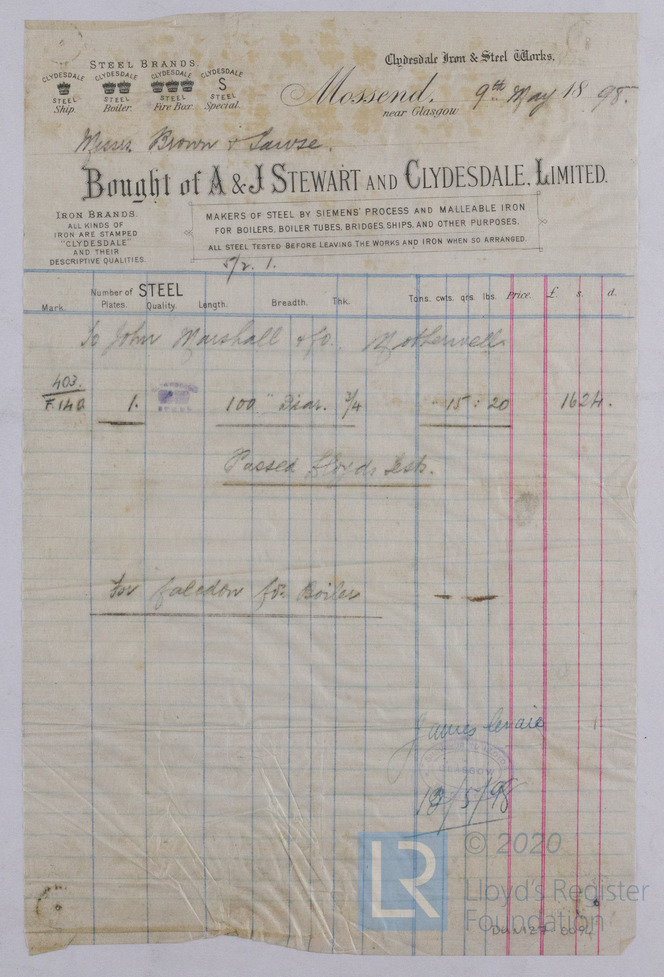 STEEL BRANDS.
CLYDESDALE CLYDESDALE CLYDESDALE CLYDESDALE
S
STEEL STEEL STEEL STEEL
Ship. Boiler. Fire Box. Special.
Clydesdale Iron & Steel Works.
Mossend, 9th May 1898.
near Glasgow
Messrs Brown &
Bought of A & J STEWART AND CLYDESDALE, LIMITED.
IRON BRANDS.
ALL KINDS OF
IRON ARE STAMPED
"CLYDESDALE"
AND THEIR
DESCRIPTIVE QUALITIES.
MAKERS OF STEEL BY SIEMENS' PROCESS AND MALLEABLE IRON
FOR BOILERS, BOILER TUBES, BRIDGES, SHIPS, AND OTHER PURPOSES.
ALL STEEL TESTED BEFORE LEAVING THE WORKS AND IRON WHEN SO ARRANGED.
Mark. Number of Plates. STEEL Quality. Length. Breadth. Thk. Tons. cwts. qrs. lbs. Price. £ s. d.
To John Marshall & Co. Motherwell
403. 1. STEEL 100" Diar. 3/4 " 15 : 20 1624.
Passed Lloyds Test.
For Caledon Co. Boiler
James
GLASGOW
12/5/98
LR
© 2020
Lloyd's Register
Foundation